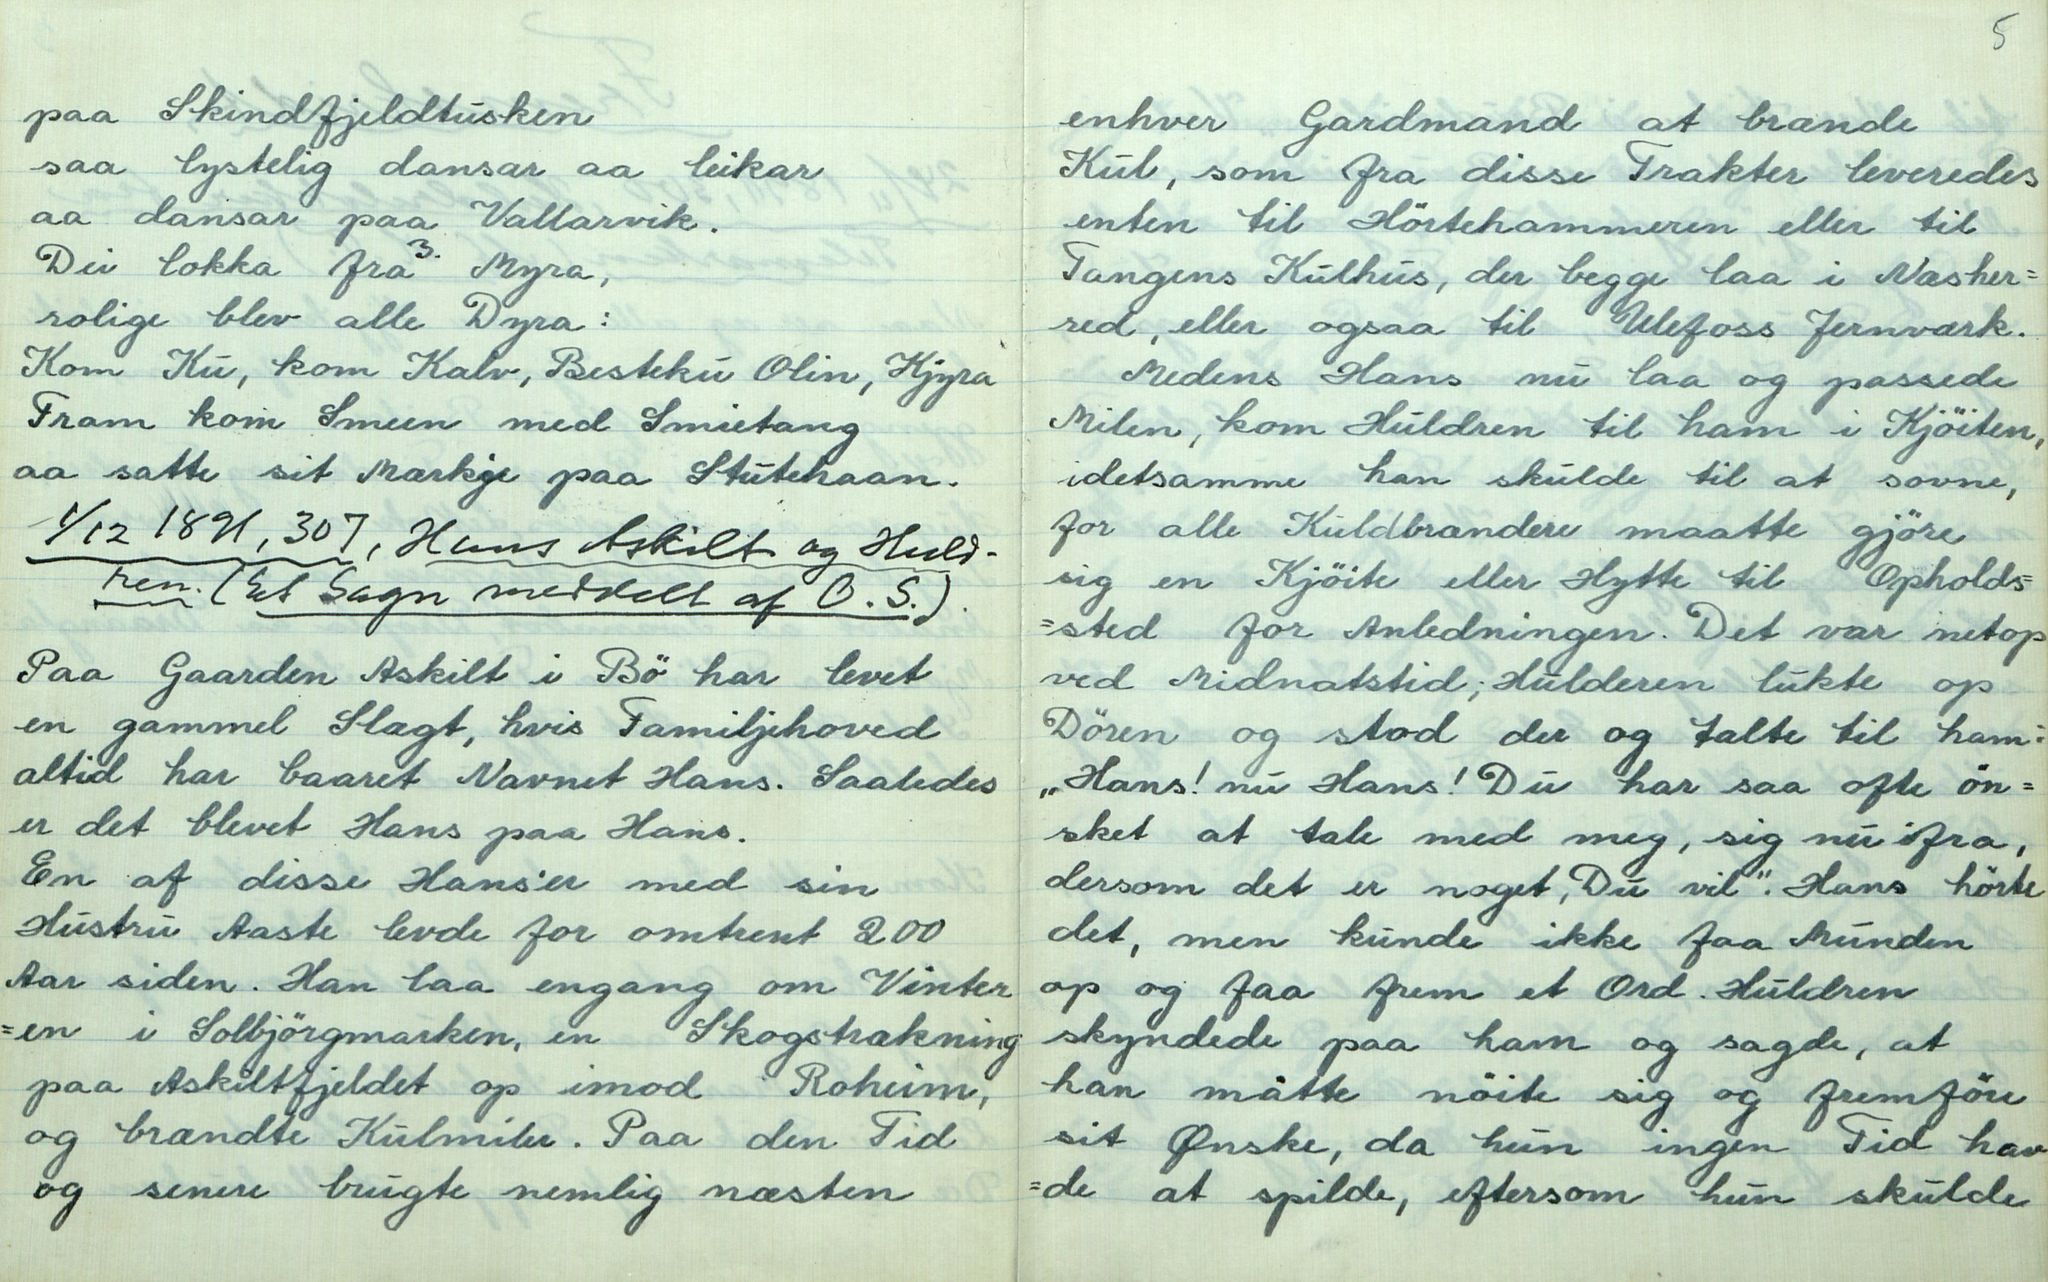 paa Skindfjeldtusken
saa lystelig dansar aa leikar
aa dansar paa Vallarvik.
3.
Dei lokka fra Myra,
rolige blev alle Dyra:
Kom Ku, kom Kalv, Besteku Olin, Kjyra
Fram kom Smeen med Smietang
aa satte sit Mærkje paa Stutehaan.
1/12 1891, 307, Hans Askilt og Huld-
ren. (Et Sagn meddelt af O. S.).
Paa Gaarden Askilt i Bö har levet
en gammel Slægt, hvis Familjehoved
altid har baaret Navnet Hans. Saaledes
er det blevet Hans paa Hans.
En af disse Hans'er med sin
Hustru Aaste levde for omtrent 200
Aar siden. Han laa engang om Vinter
=en i Solbjörgmarken, en Skogstrækning
paa Askiltfjeldet op imod Roheim,
og brændte Kulmiler. Paa den Tid
og senere brugte nemlig næsten
5
enhver Gardmand at brænde
Kul, som fra disse Trakter leveredes
enten til Hörtehammeren eller til
Tangens Kulhus, der begge laa i Næsher=
red, eller ogsaa til Ulefoss Jernværk.
Medens Hans nu laa og passede
Milen, kom Huldren til ham i Kjöiten,
idetsamme han skulde til at sovne,
for alle Kuldbrændere maatte gjöre
sig en Kjöite eller Hytte til Opholds=
=sted for Anledningen. Det var netop
ved Midnatstid; Hulderen lukte op
Dören og stod der og talte til ham:
„Hans! nu Hans! Du har saa ofte ön=
sket at tale med meg, sig nu ifra,
dersom det er noget, Du vil". Hans hörte
det, men kunde ikke faa Munden
op og faa frem et Ord. Huldren
skyndede paa ham og sagde, at
han måtte nöite sig og fremföre
sit Ønske, da hun ingen Tid hav
=de at spilde, eftersom hun skulde